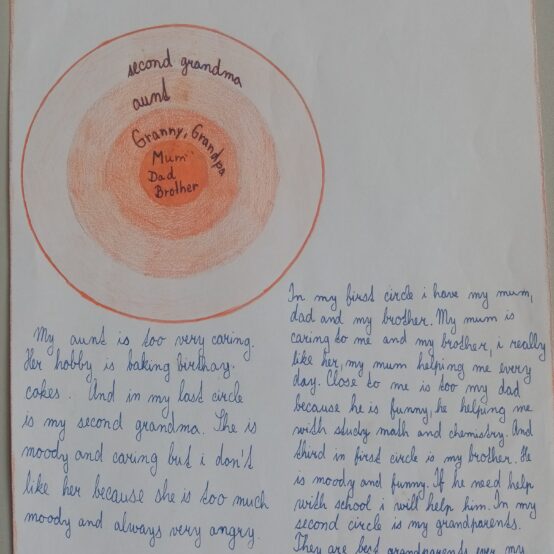 second grandma
aunt
Granny, Grandpa
Mum
Dad
Brother
In my first circle i have my mum,
dad and my brother. My mum is
caring to me and my brother, i really
like her, my mum helping me every
day. Close to me is too my dad
because he is funny, he helping me
with study math and chemistry. And
third in first circle is my brother. He
is moody and funny. If he need help
with school i will help him. In my
second circle is my grandparents.
They are best grandparents ever my
My aunt is too very caring.
Her hobby is baking birthay.
cakes. And in my last circle
is my second grandma. The is
moody and caring but i don't
like her because she is too much
moody and always very angry.